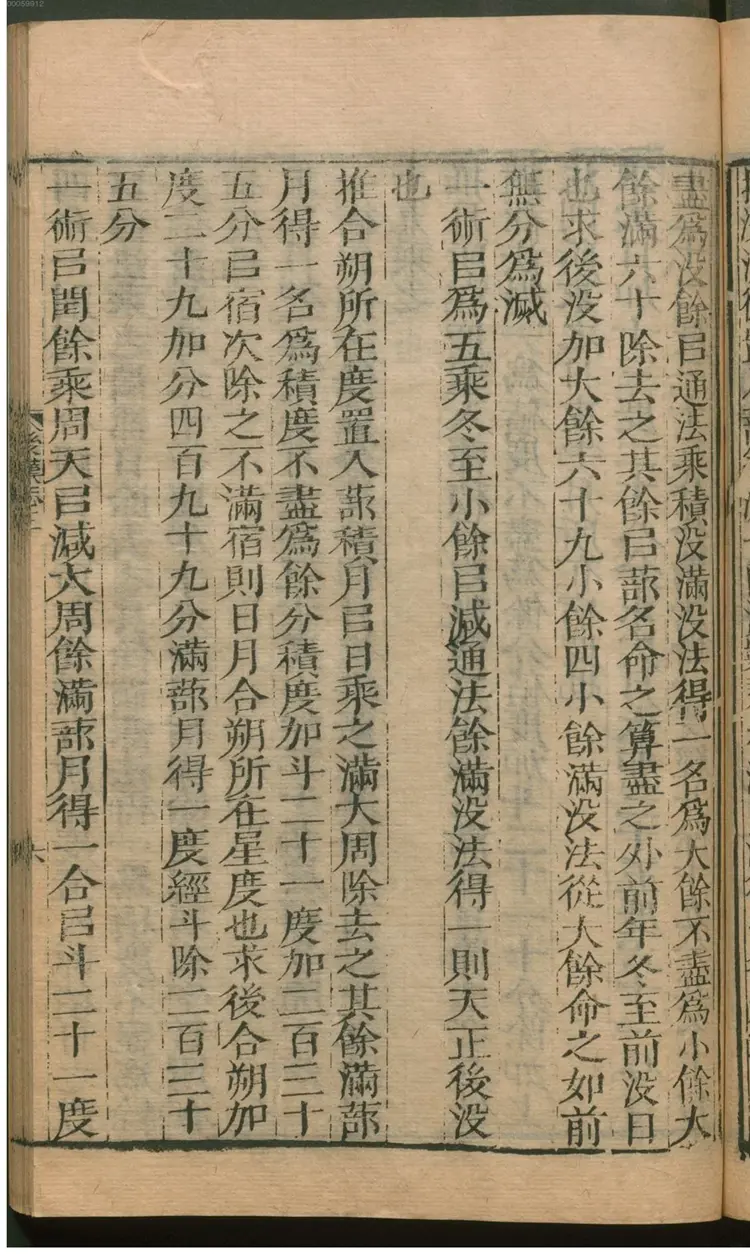 盡爲没餘㠯通法乘積没滿没法得一名爲大餘不盡爲小餘大
餘滿六十除去之其餘㠯蔀名命之筭盡之外前年冬至前没日
也求後没加大餘六十九小餘四小餘滿没法從大餘命之如前
無分爲滅
一術㠯爲五乘冬至小餘㠯減通法餘滿没法得一則天正後没
也
推合朔所在度置入蔀積月㠯日乘之滿大周除去之其餘滿蔀
月得一名爲積度不盡爲餘分積度加斗二十一度加二百三十
五分㠯宿次除之不滿宿則日月合朔所在星度也求後合朔加
度二十九加分四百九十九分滿蔀月得一度經斗除二百三十
五分
一術㠯閏餘乘周天㠯減大周餘滿蔀月得一合㠯斗二十一度
後漢志二
六
00059912